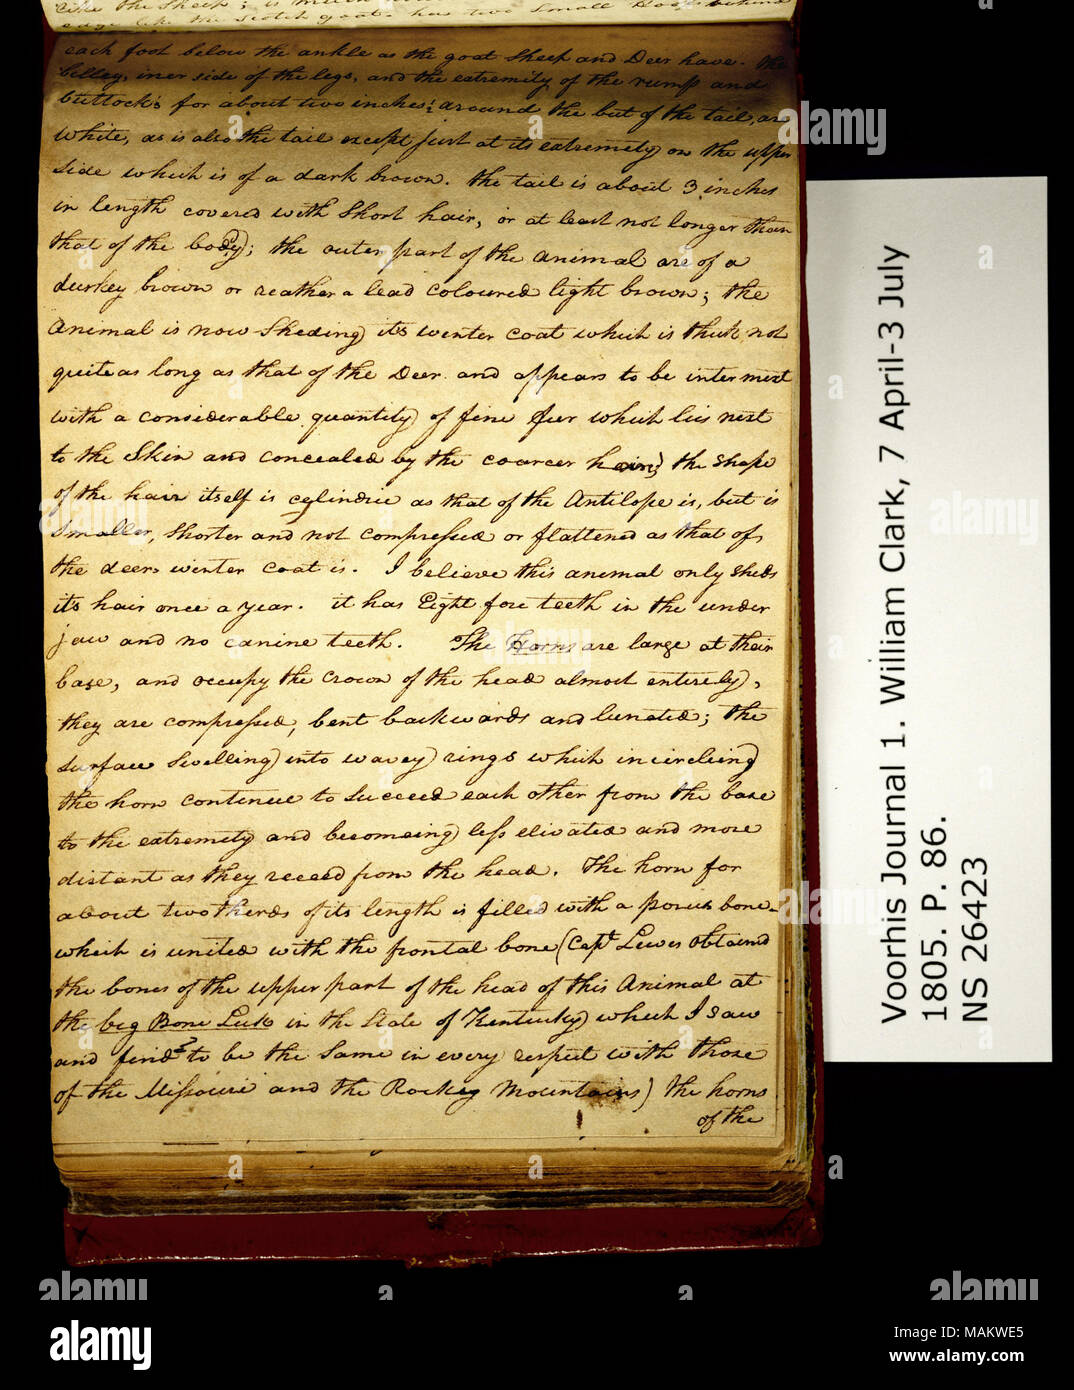 like the Sheep; is much
edge like the Scotch goat. has two Small Hoofs behind
each foot below the ankle as the goat Sheep and Deer have. the
belley, iner side of the legs, and the extremity of the rump and
buttocks for about two inches; around the but of the tail, are
white, as is also the tail except just at its extremity on the upper
Side which is of a dark brown. the tail is about 3 inches
in length covered with Short hair, or at least not longer than
that of the body; the outer part of the animal are of a
durkey brown or reather a lead coloured light brown; the
Animal is now Sheding its winter coat which is thick not
quite as long as that of the Deer and appears to be inter mixt
with a considerable quantity of fine fur which lies next
to the Skin and concealed by the coarcer hair; the shape
of the hair itself is cylindric as that of the Antilope is, but is
Smaller, Shorter and not compressed or flattened as that of
the deers winter coat is. I believe this animal only sheds
it's hair once a year. it has Eight fore teeth in the under
jaw and no canine teeth. The Horns are large at their
base, and occupy the crown of the head almost entirely,
they are compressed, bent backwards and lunated; the
Surface Swelling into wavey rings which incircleing
the horn continue to Succeed each other from the base
to the extremity and becomeing less elivated and more
distant as they receed from the head. The horn for
about two therds of its length is filled with a porus bone
which is united with the frontal bone (Capt. Lewis obtained
the bones of the upper part of the head of this Animal at
the big Bone Lick in the State of Kentucky) which I Saw
and find? to be the Same in every respect with those
of the Missouri and the Rockey Mountains) the horns
of the
Voorhis Journal 1. William Clark, 7 April-3 July
1805. P. 86.
NS 26423
alamy
Image ID: MAKWE5
www.alamy.com